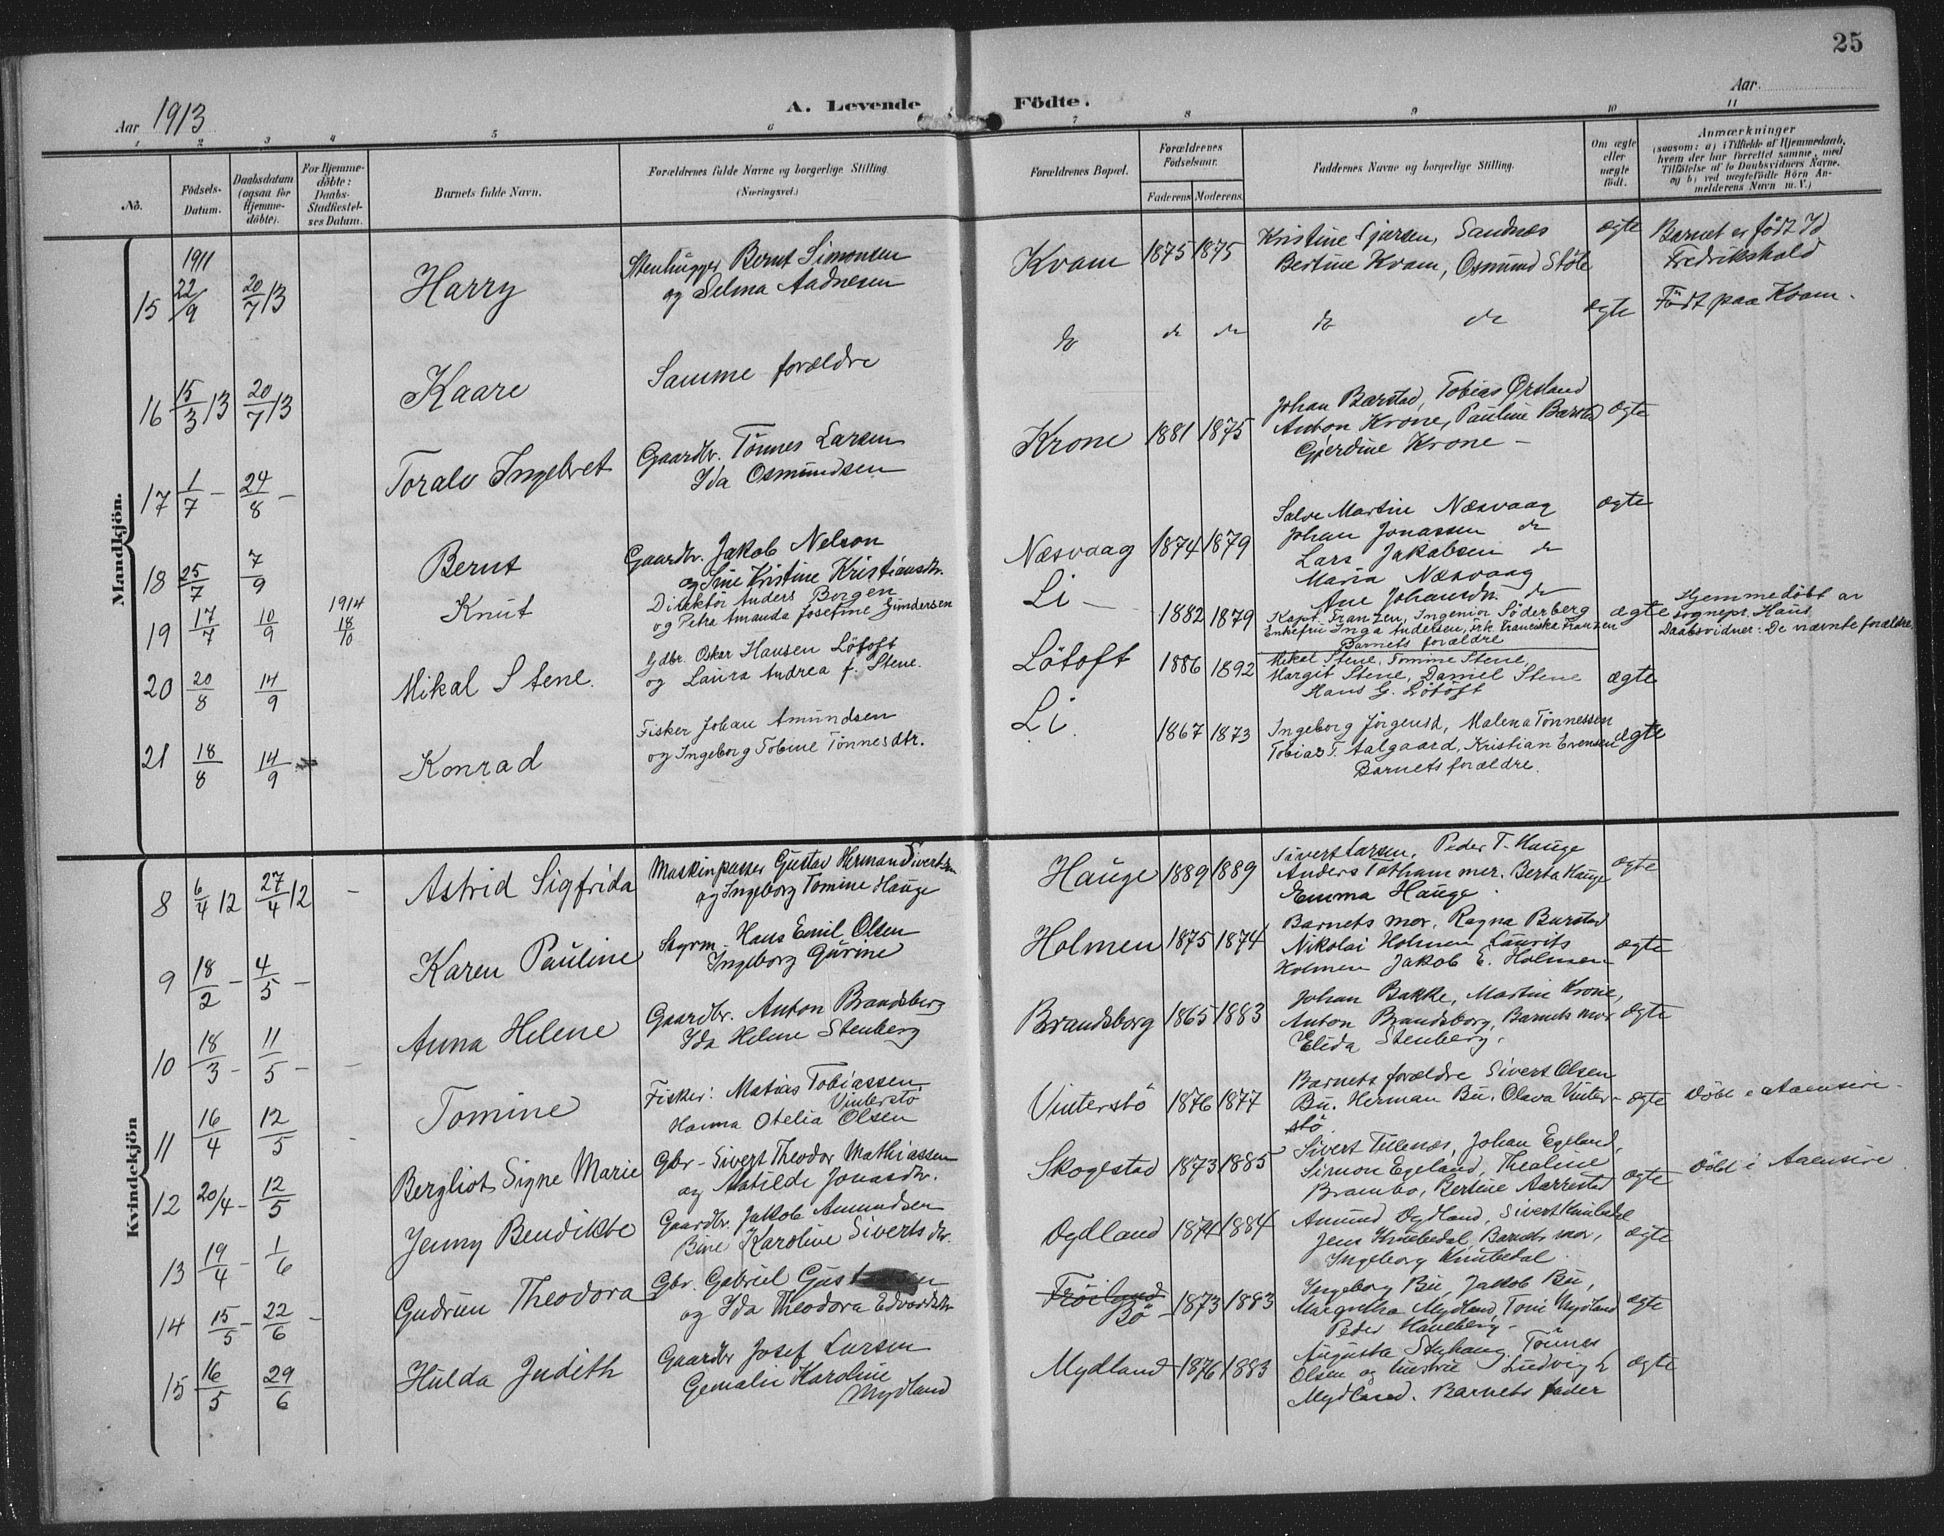 25
Aar 1913
A. Levende Födte.
Aar
1 2 3 4 5 6 7 8 9 10 11
No.
Födsels-Datum.
Daabsdatum (ogsaa for Hjemme-döbte).
For Hjemme-döbte: Daabs-Stadfæstel-ses Datum.
Barnets fulde Navn.
Forældrenes fulde Navne og borgerlige Stilling (Næringsvei.)
Forældrenes Bopæl.
Forældrenes Födselsaar.
Faderens Moderens
Faddernes Navne og borgerlige Stilling.
Om ægte eller uægte födt.
Anmærkninger
(saasom: a) i Tilfælde af Hjemmedaab, hvem der har forrettet samme, med Tilföielse af to Daabsvidners Navne, og b) ved uægtefödte Börn An-melderens Navn m. V.)
Mandkjön.
1911
15 22/9 20/7 13 Harry
Stenhugger Bernt Simonsen
og Selma Aadnesen
Kvam 1875 1875
Kristine Sjursen, Sandnæs
Bertine Kvam, Osmund Støle
ægte
Barnet er født Id
Fredrikshald
16 15/3 13 20/7 13 Kaare
Samme forældre
do do do do do
ægte
Født paa Kvam.
17 1/7 - 24/8 - Toralv Ingebret
Gaardbr. Tønnes Larsen
Ida Osmundsen
Krone 1881 1875
Johan Barstad, Tobias Ørsland
Anton Krone, Pauline Barstad
Gjerdine Krone -
ægte
18 25/7 7/9 Bernt
Gaardbr. Jakob Nelson
og Sine Kristine Kristiansdtr.
Næsvaag 1874 1879
Salve Martin Næsvaag
Johan Jonassen do
Lars Jakobsen do
Maria Næsvaag
Ane Johansdtr. do
ægte
19 17/7 10/9 1914 18/10 Knut
Direktör Anders Borgen
og Petra Amanda Josefine Gundersen
Li - 1882 1879
Kapt. Franzen, Ingeniör Söderberg
Enkefru Inga Andersen, frk. Franciska Franzen
Barnets forældre
ægte
Hjemmedøbt av
sognepr. Haus
Daabsvidner: De nævnte forældre.
20 20/8 14/9 Mikal Stene.
Gdbr. Oskar Hansen Lötoft
og Laura Andrea f. Stene.
Lötoft 1886 1892
Mikal Stene, Tomine Stene,
Margit Stene, Daniel Stene
Hans G. Lötoft
ægte
21 18/8 14/9 Konrad
Fisker Johan Amundsen
og Ingeborg Tobine Tønnesdtr.
Li. 1867 1873
Ingeborg Jörgensd, Malena Tønnessen
Tobias T. Aalgaard, Kristian Evensen
Barnets forældre.
ægte
Kvindekjön
8 6/4 12 27/4 12 - Astrid Sigfrida
Maskinpasser Gustav Herman Sivertsen
og Ingeborg Tomine Hauge
Hauge 1889 1889
Sivert Larsen, Peder T. Hauge
Anders Tothammer. Berta Hauge
Emma Hauge.
ægte
9 18/2 - 4/5 - Karen Pauline
Styrm. Hans Emil Olsen
Ingeborg Gurine
Holmen 1875 1874
Barnets mor. Ragna Burstad
Nikolai Holmen Laurits
Holmen Jakob E. Holmen
ægte
10 18/3 - 11/5 - Anna Helene
Gaardbr. Anton Brandsberg
Ida Helene Stenberg
Brandsborg 1865 1883
Johan Bakke, Martin Krone,
Anton Brandsborg, Barnets mor
Elida Stenberg.
ægte
11 16/4 12/5 - Tomine
Fisker: Matias Tobiassen
Vinterstö
Hanna Otelia Olsen
Vinterstö 1876 1877
Barnets forældre Sivert Olsen
Bu. Herman Bu. Olava Vinter-
stö
ægte
12 20/4 - 12/5 Bergliot Signe Marie
Gbr - Sivert Theodor Mathiassen
og Matilde Jonasdtr.
Skogestad 1873 1885
Sivert Tellenæs, Johan Egeland,
Simon Egeland, Thealine
Brambo, Bertine Aarrestad
ægte
Døbt i Aaensire
13 19/4 - 1/6 Jenny Bendikte
Gaardbr. Jakob Amundsen
Bine Karoline Siverts dtr.
Dydland 1874 1884
Amund Dydland,
Jens Knubedal, Barnets mor,
Ingeborg Knubedal
ægte
14 15/5 - 22/6 - Gudrun Theodora
Gbr. Gabriel
og Ida Theodora Edvardsdtr
Fröiland
Bö - 1873 1883
Ingeborg Bu, Jakob Bu,
Margretha Mydland, Toni Mydland
Peder Haneberg -
ægte
15 16/5 29/6 Hulda Judith
Gaardbr Josef Larsen
Gemalie Karoline
Mydland
Mydland 1876 1883
Augusta Tönnes
Olsen og hustru Ludvig L
Mydland. Barnets fader
ægte